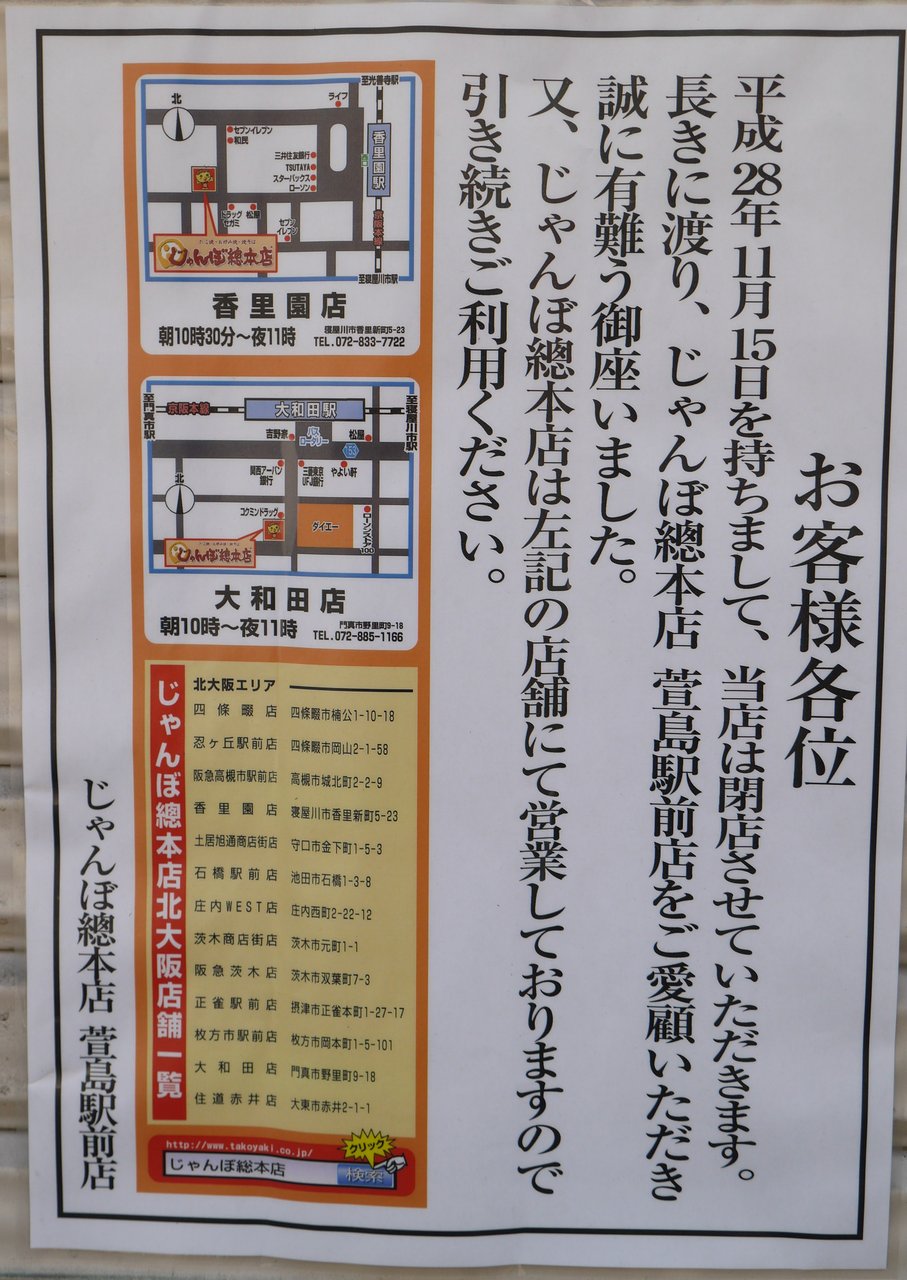 お客様各位
平成28年11月15日を持ちまして、当店は閉店させていただきます。
長きに渡り、じゃんぼ總本店 萱島駅前店をご愛顧いただき
誠に有難う御座いました。
又、じゃんぼ總本店は左記の店舗にて営業しておりますので
引き続きご利用ください。
至光善寺駅
北
ライフ
セブンイレブン
和民
三井住友銀行
TSUTAYA
スターバックス
ローソン
香里園駅
京阪本線
ドラッグ
セガミ
松屋
セブン
イレブン
たこ焼・お好み焼・焼そば
じゃんぼ總本店
至寝屋川市駅
香里園店
朝10時30分～夜11時
寝屋川市香里新町5-23
TEL.072-833-7722
至門真市駅
京阪本線
大和田駅
至寝屋川市駅
吉野家
バス
ロータリー
松屋
153
関西アーバン
銀行
三菱東京
UFJ銀行
やよい軒
北
コクミンドラッグ
ダイエー
ローソンストア
100
じゃんぼ總本店
大和田店
朝10時～夜11時
門真市野里町9-18
TEL.072-885-1166
じゃんぼ總本店北大阪店舗一覧
北大阪エリア
四條畷店 四條畷市楠公1-10-18
忍ヶ丘駅前店 四條畷市岡山2-1-58
阪急高槻市駅前店 高槻市城北町2-2-9
香里園店 寝屋川市香里新町5-23
土居旭通商店街店 守口市金下町1-5-3
石橋駅前店 池田市石橋1-3-8
庄内WEST店 庄内西町2-22-12
茨木商店街店 茨木市元町1-1
阪急茨木店 茨木市双葉町7-3
正雀駅前店 摂津市正雀本町1-27-17
枚方市駅前店 枚方市岡本町1-5-101
大和田店 門真市野里町9-18
住道赤井店 大東市赤井2-1-1
http://www.takoyaki.co.jp/
クリック
じゃんぼ総本店 検索
じゃんぼ總本店 萱島駅前店